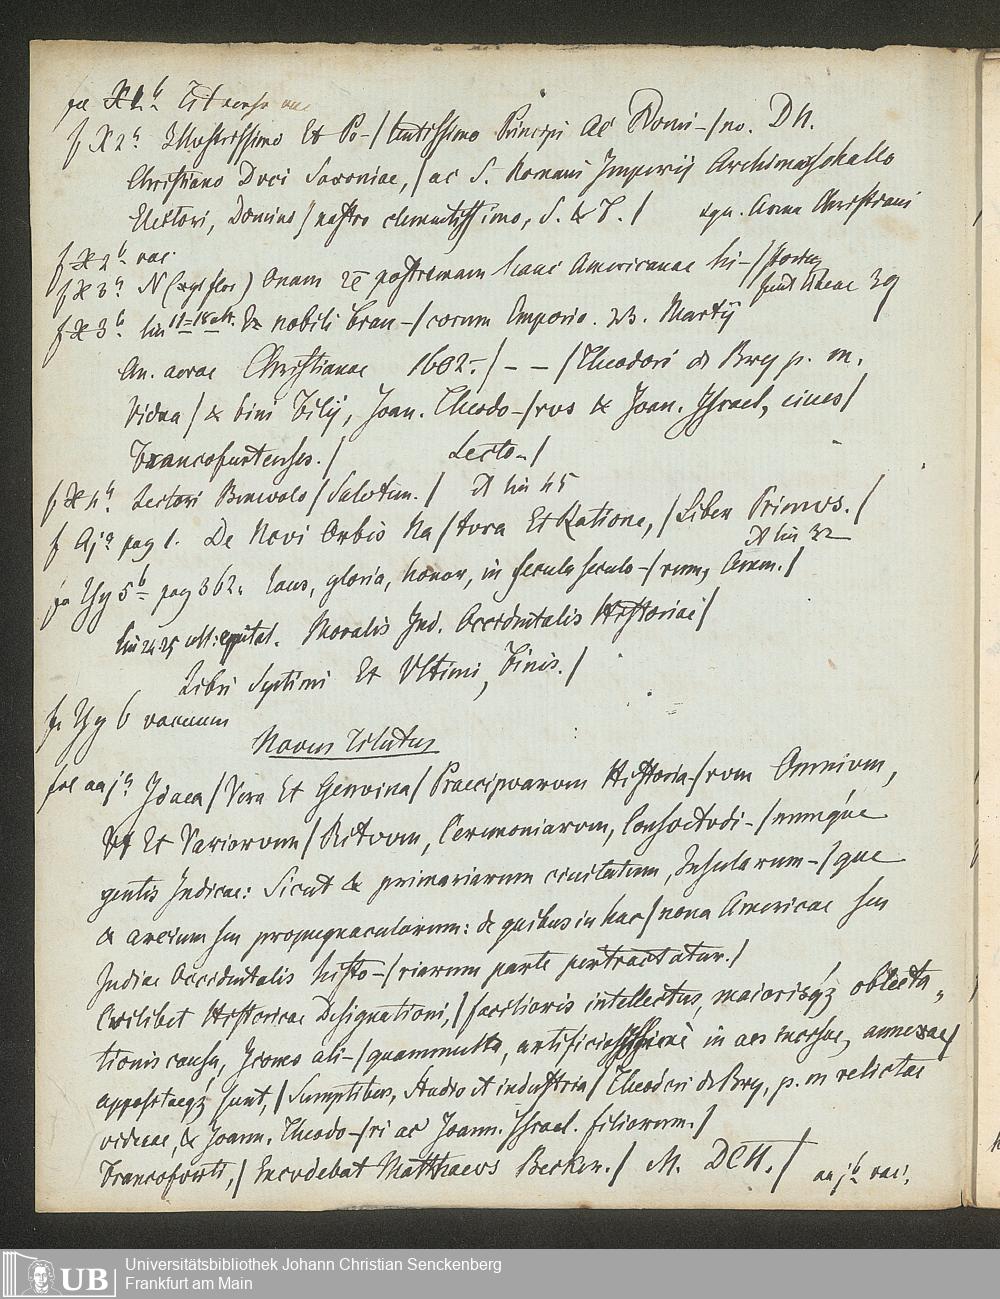 fol X1b Tit aversa vac
f X2a Illustrissimo Et Po-/tentissimo Principi Ac Domi-/no. DN.
Christiano Duci Saxoniae,/ac S. Romani Imperij Archimarschallo
Electori, Domino/nostro clementissimo, S. & T./ Arma Christiani
f X2b vac.
f X3a N Quam postremam hanc Americanae hi-/storiae
sunt lineae 39
f X3b lin 17-18 nobili Fran-/corum Emporio. Martij
An. aerae Christianae 1602./ – – /Theodori de Bry p. m.
vidua/& bini Filij, Joan. Theodo-/rus & Joan. Israel, ciues/
Francofurtenses./ Lecto-/
f X4a Lectori Benevolo/Salutem./ lin 45
f Aja pag 1. De Novi Orbis Na/tura Et Ratione,/Liber Primus./
lin 32
fo Yy 5b pag 362. Laus, gloria, honor, in secula seculo-/rum, Amen./
lin 24-25 Moralis Ind. Occidentalis Historiae/
Libri Septimi Et Ultimi, Finis./
fo Yy 6 vacuum
Novus Titulus
fol aaja Idaea/Vera Et Genuina/Praecipuarum Historia-/rum Omnium,
Ut Et Variorum/Rituum, Ceremoniarum, Consuetudi-/numque
gentis Indicae: Sicut & primariarum ciuitatum, Insularum-/que
& arcium seu propugnaculorum: de quibus in hac/nona Americae seu
Indiae Occidentalis histo-/riarum parte pertractatur./
Cuilibet Historicae Designationi,/facilioris intellectus, maiorisqз oblecta„
tionis causa, Icones ali-/quammulta, artificiosissime in aes incisae, annexae/
appositaeqз sunt,/Sumptibus, studio et industria/Theodori de Bry, p. m relictae
viduae, & Joann. Theodo-/ri ac Joann. Israel. filiorum./
Francofurti,/Excudebat Matthaeus Becker./ M. DCII./ aajb vac.
Universitätsbibliothek Johann Christian Senckenberg
UB Frankfurt am Main